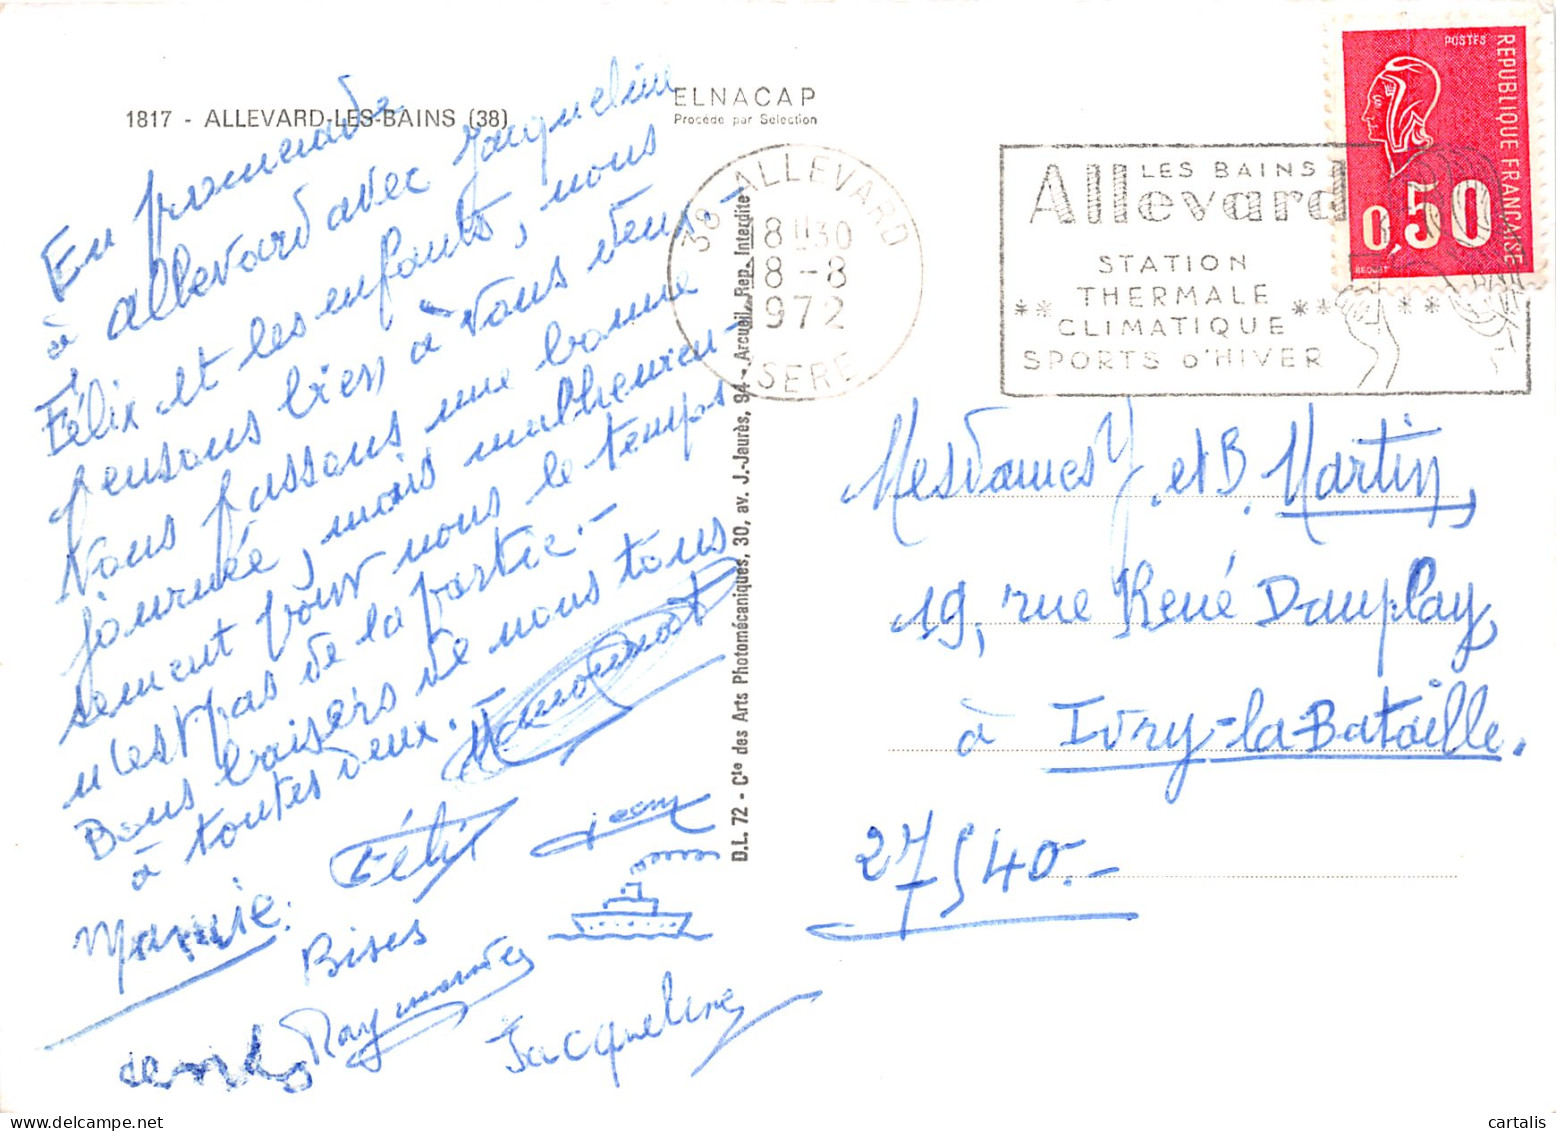 1817 - ALLEVARD-LES-BAINS (38)
ELNACAP
Procédé par Sélection
En promenade
à Allevard avec Jacqueline
Félix et les enfants, nous
pensons bien à vous deux.-
Nous passons une bonne
journée, mais malheureu-
sement pour nous le temps
n'est pas de la partie.-
Bons baisers de nous tous
à toutes deux.-
Mamie.
Félix
Jean
Bises
Raymonde
Jacqueline
D.L. 72 - Cie des Arts Photomécaniques, 30, av. J.-Jaurès, 94 - Arcueil Rep. Interdite
38 - ALLEVARD
18H30
8-8
1972
ISERE
LES BAINS
Allevard
STATION
THERMALE
** CLIMATIQUE ** **
SPORTS D'HIVER
POSTES
REPUBLIQUE FRANÇAISE
0,50
BEQUET
Mesdames J. et B. Martin,
19, rue René Dauplay,
à Ivry-la-Bataille.
27540.-
cartalis